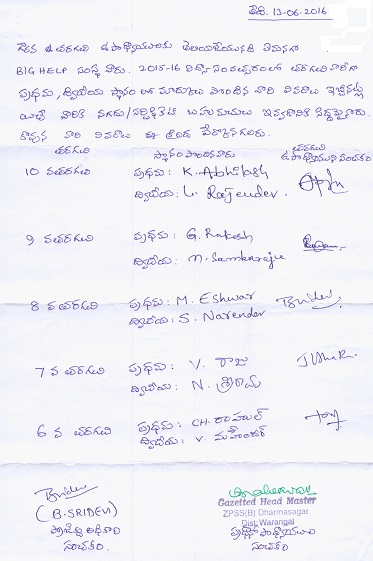 తేది. 13-06-2016
గౌరవ తరగతి ఉపాధ్యాయులకు తెలియజేయునది ఏమనగా
BIG HELP సంస్థ వారు. 2015-16 విద్యా సంవత్సరంలో తరగతి వారీగా
ప్రథమ, ద్వితీయ స్థానం లో మార్కులు పొందిన వారి వివరాలు
వారికి నగదు/సర్టిఫికెట్ బహుమానాలు ఇవ్వడానికి సిద్ధమైనారు.
కావున వారి వివరాలు ఈ క్రింద పేర్కొనగలరు.
తరగతి స్థానం పొందినవారు తరగతి ఉపాధ్యాయుని సంతకం
10 వ తరగతి ప్రథమ: K. Abhilash
ద్వితీయ: L. Rajender.
9 వ తరగతి ప్రథమ: G. Rakesh
ద్వితీయ:
8 వ తరగతి ప్రథమ: M. Eshwar
ద్వితీయ: S. Narender
7 వ తరగతి ప్రథమ: V. రాజు
ద్వితీయ: N. శ్రీరామ్
6 వ తరగతి ప్రథమ: CH. రాహుల్
ద్వితీయ: V. మహేందర్
(B. SRIDEVI)
సంతకం.
Gazetted Head Master
ZPSS(B) Dharmasagar
Dist: Warangal
ప్రధానోపాధ్యాయుల
సంతకం